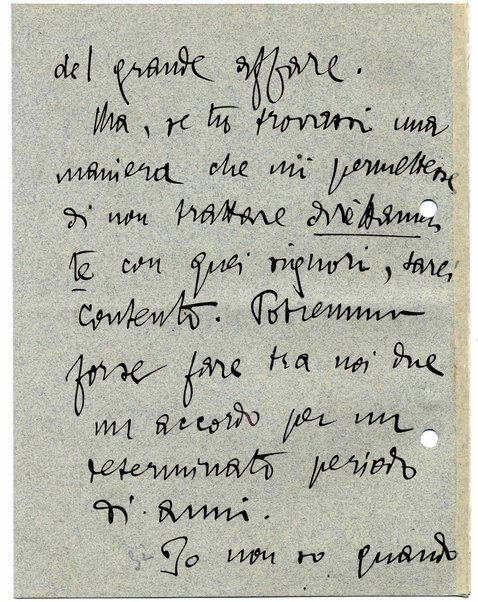 del grande affare.
Ma, se tu trovassi una
maniera che mi permettesse
di non trattare direttamen
te con quei signori, sarei
contento. Potremmo
forse fare tra noi due
un accordo per un
determinato periodo
di anni.
Io non so quando